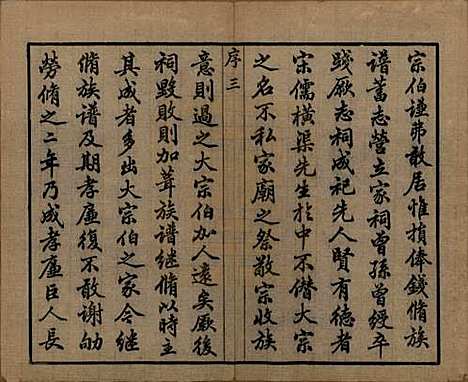 宗伯謹弗敢居惟捐俸錢脩族
譜蓄志營立家祠曾孫曾綬卒
踐厥志祠成祀先人賢有德者
宋儒橫渠先生於中不僭大宗
之名不私家廟之祭敬宗收族
序三
意則過之大宗伯加人遠矣厥後
祠毀敗則加葺族譜繼脩以時主
其成者多出大宗伯之家今繼
脩族譜及期孝廉復不敢謝劬
勞脩之二年乃成孝廉臣人長